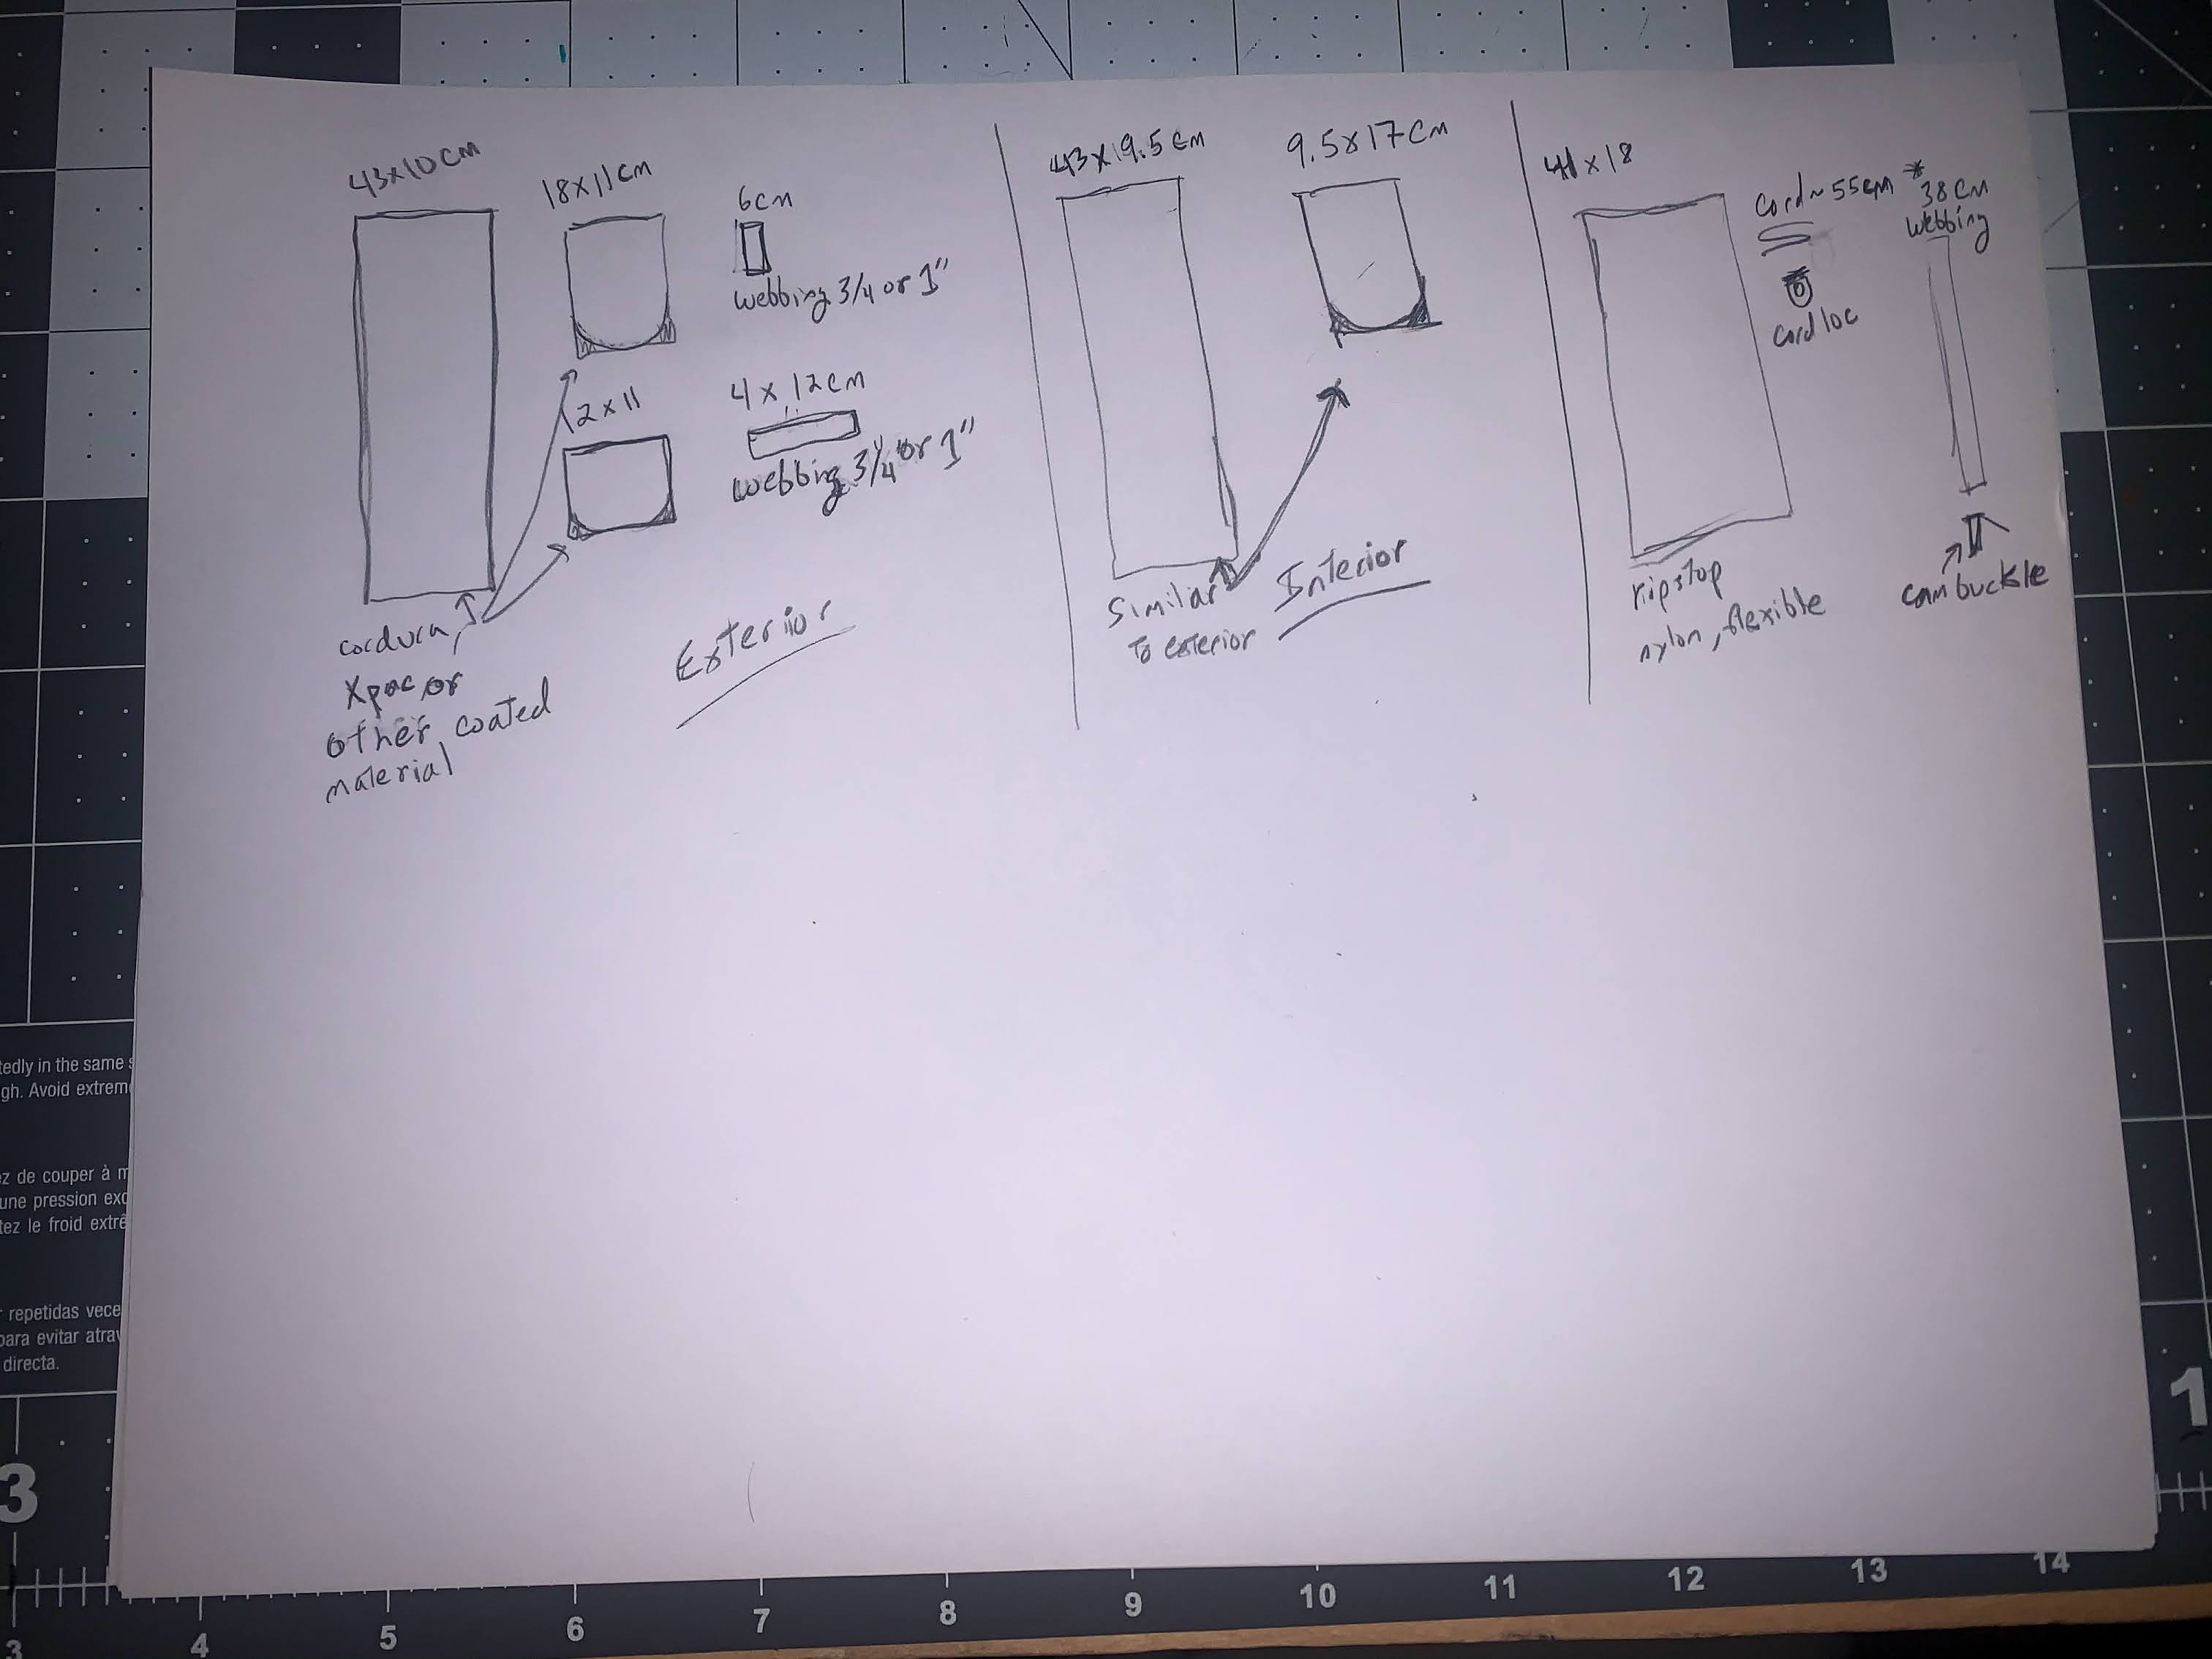 43x10cm
18x11cm
6cm
webbing 3/4 or 1"
12x11
4 x 12cm
webbing 3/4 or 1"
cordura,
Xpac, or
other coated
material
Exterior
43x19.5cm
9.5x17cm
Similar
To exterior
Interior
41x18
Cord ~ 55cm *
cord loc
38cm
webbing
ripstop
nylon, flexible
cam buckle
tedly in the same s
gh. Avoid extrem
z de couper à m
une pression exc
tez le froid extrê
r repetidas vece
para evitar atrav
directa.
3
1
3 4 5 6 7 8 9 10 11 12 13 14